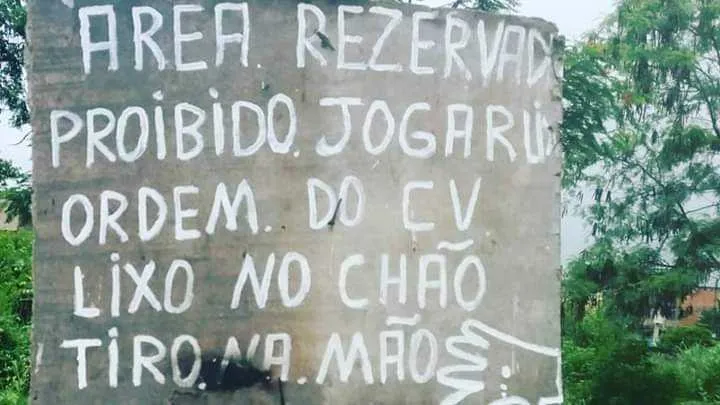 ÁREA REZERVAD
PROIBIDO JOGAR
ORDEM. DO CV
LIXO NO CHÃO
TIRO. NA. MÃO